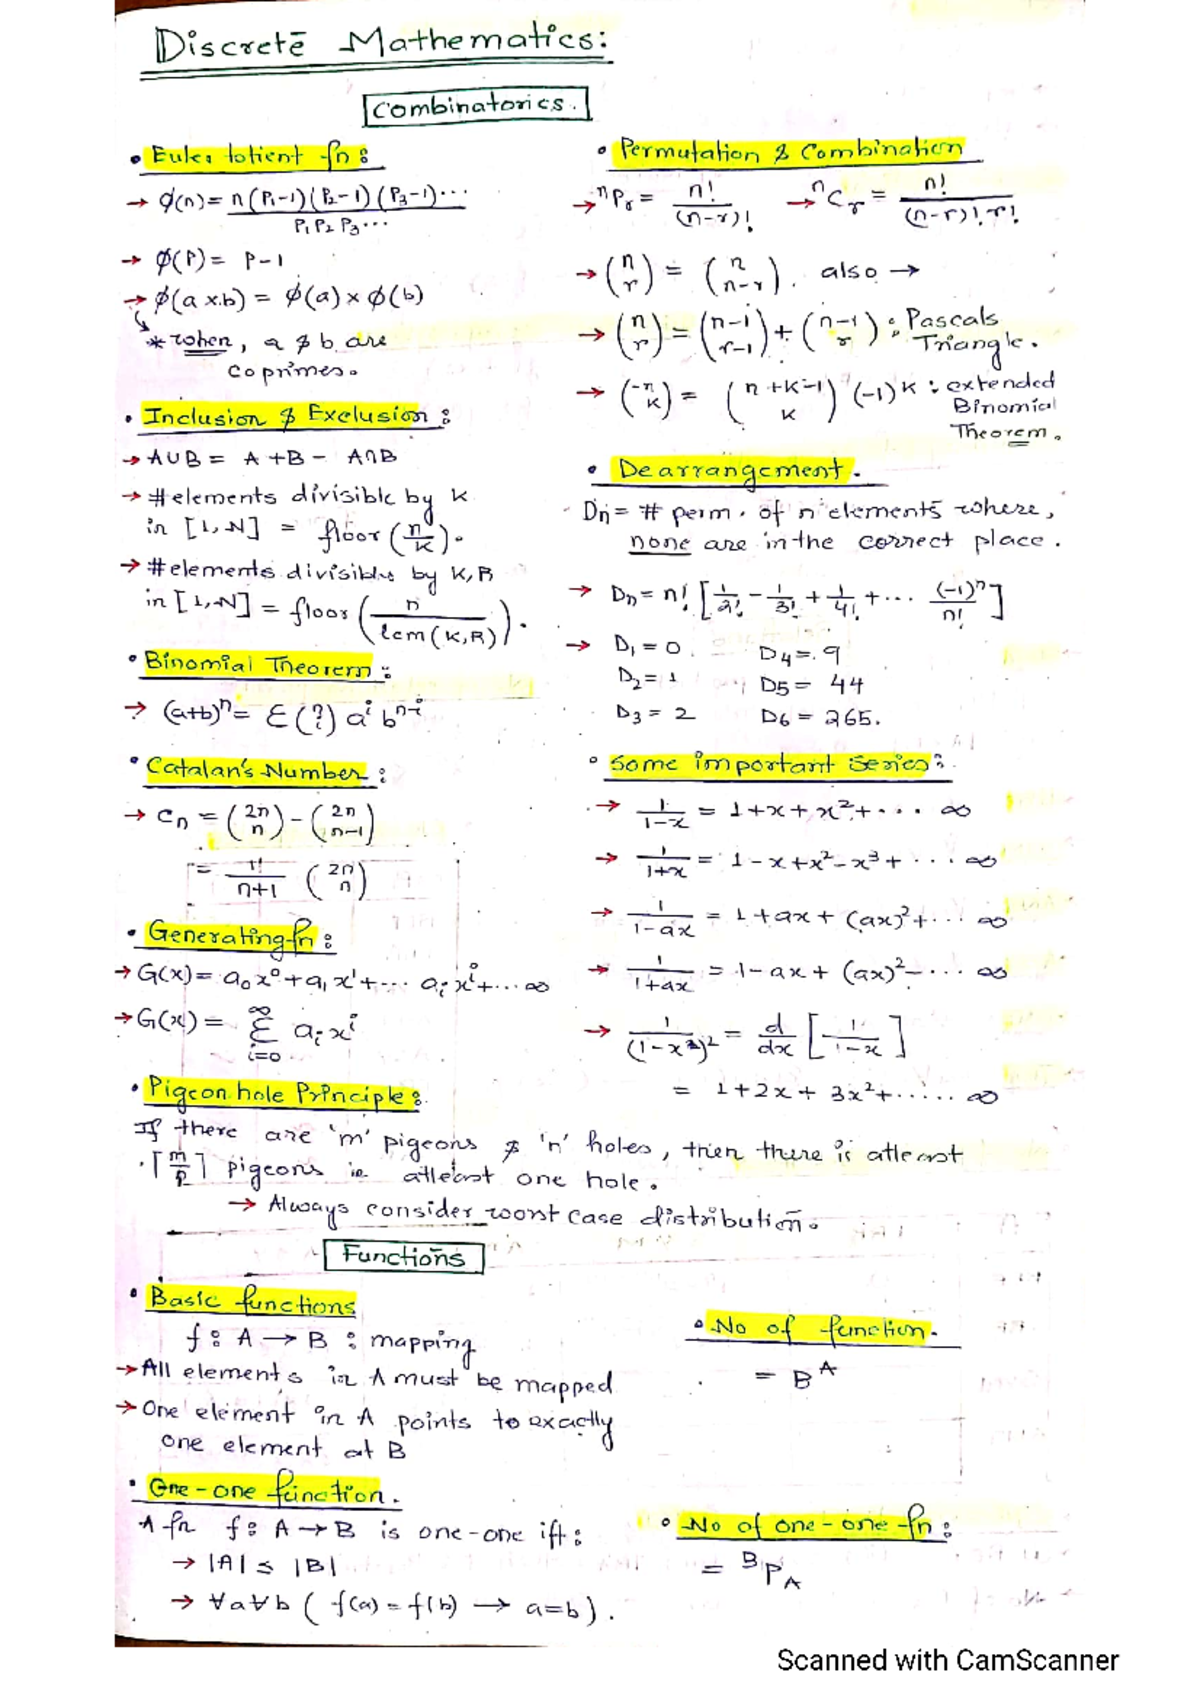 Discrete Mathematics:
Combinatorics.
• Euler totient fn :
→ φ(n) = n(P₁-1)(P₂-1)(P₃-1)... / P₁ P₂ P₃...
→ φ(P) = P-1
→ φ(a x.b) = φ(a) x φ(b)
* when, a & b are
coprimes.
• Inclusion & Exclusion :
→ A∪B = A + B - A∩B
→ # elements divisible by K
in [1, N] = floor (n/K).
→ # elements divisible by K, R
in [1, N] = floor ( n / lcm(K,R) ).
• Binomial Theorem :
→ (a+b)ⁿ = Σ (n i) aⁱ bⁿ⁻ⁱ
• Catalan's Number :
→ Cn = (2n n) - (2n n-1)
= 1/n+1 (2n n)
• Generating fn :
→ G(x) = a₀x⁰ + a₁x¹ + ... aᵢxⁱ + ... ∞
→ G(x) = Σ i=0 ∞ aᵢxⁱ
• Permutation & Combination
→ ⁿPr = n! / (n-r)! → ⁿCr = n! / (n-r)! r!
→ (n r) = (n n-r). also →
→ (n r) = (n-1 r-1) + (n-1 r) : Pascals
Triangle.
→ (-n K) = (n+K-1 K) (-1)K : extended
Binomial
Theorem.
• Dearrangement.
Dn = # perm. of n elements where,
none are in the correct place.
→ Dn = n! [1/2! - 1/3! + 1/4! + ... (-1)ⁿ/n!]
→ D₁ = 0 D₄ = 9
D₂ = 1 D₅ = 44
D₃ = 2 D₆ = 265.
• Some important series :
→ 1/1-x = 1+x+x²+... ∞
→ 1/1+x = 1-x+x²-x³+... ∞
→ 1/1-ax = 1+ax+(ax)²+... ∞
→ 1/1+ax = 1-ax+(ax)²-... ∞
→ 1/(1-x)² = d/dx [1/1-x]
= 1+2x+3x²+..... ∞
• Pigeon hole Principle :
If there are 'm' pigeons & 'n' holes, then there is atleast
⌈m/n⌉ pigeons in atleast one hole.
→ Always consider worst case distribution.
Functions
• Basic functions
f : A → B : mapping
→ All elements in A must be mapped
→ One element in A points to exactly
one element at B
• No of function.
= B^A
• One-one function.
A fn f : A → B is one-one iff :
→ |A| ≤ |B|
→ ∀a∀b ( f(a) = f(b) → a=b ).
• No of one-one fn :
= ᴮP_A
Scanned with CamScanner